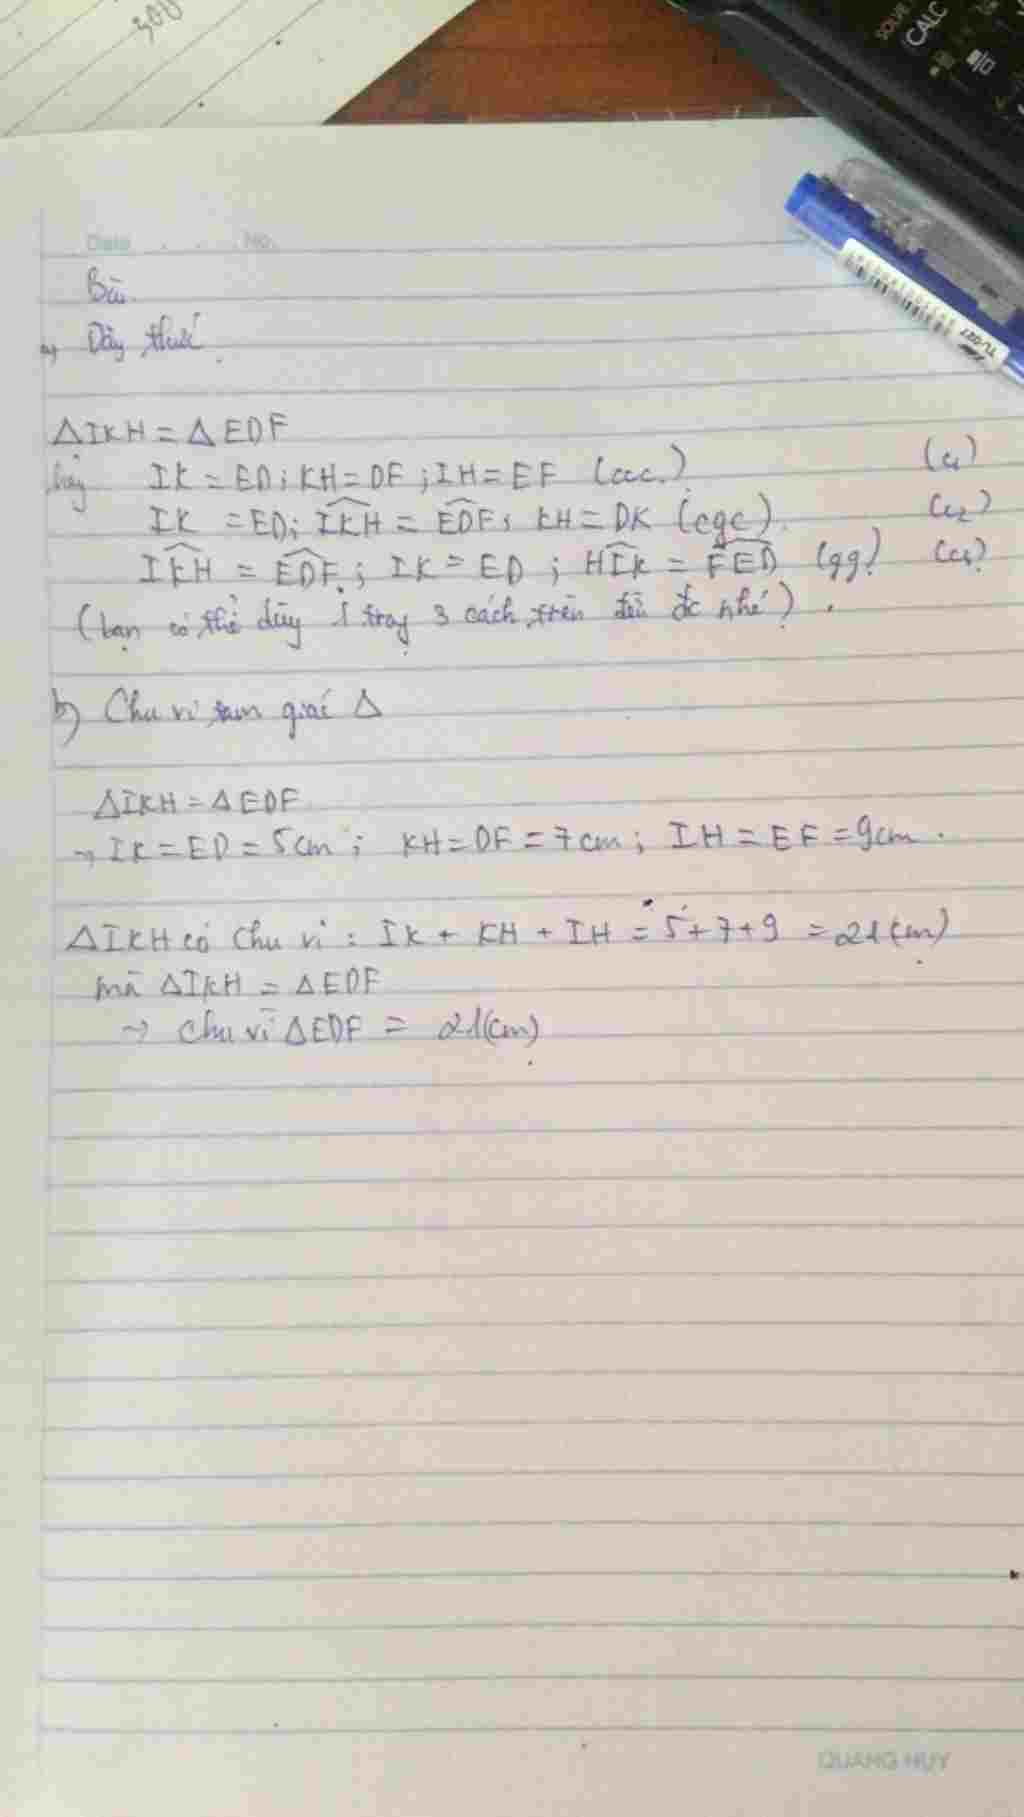 300
SOLVE
CALC
Date No.
TL-027
Bài
a) Dãy thức
ΔIKH = ΔEDF
hãy IK = ED; KH = DF; IH = EF (ccc) (c1)
IK = ED; IKH = EDF; KH = DK (cgc) (c2)
IKH = EDF; IK = ED; HIK = FED (gg) (c3)
(bạn có thể dùng 1 trong 3 cách trên đều đc nhé).
b) Chu vi tam giác Δ
ΔIKH = ΔEDF
→ IK = ED = 5cm; KH = DF = 7cm; IH = EF = 9cm.
ΔIKH có chu vi: IK + KH + IH = 5+7+9 = 21(cm)
mà ΔIKH = ΔEDF
→ chu vi ΔEDF = 21(cm)
QUANG HUY